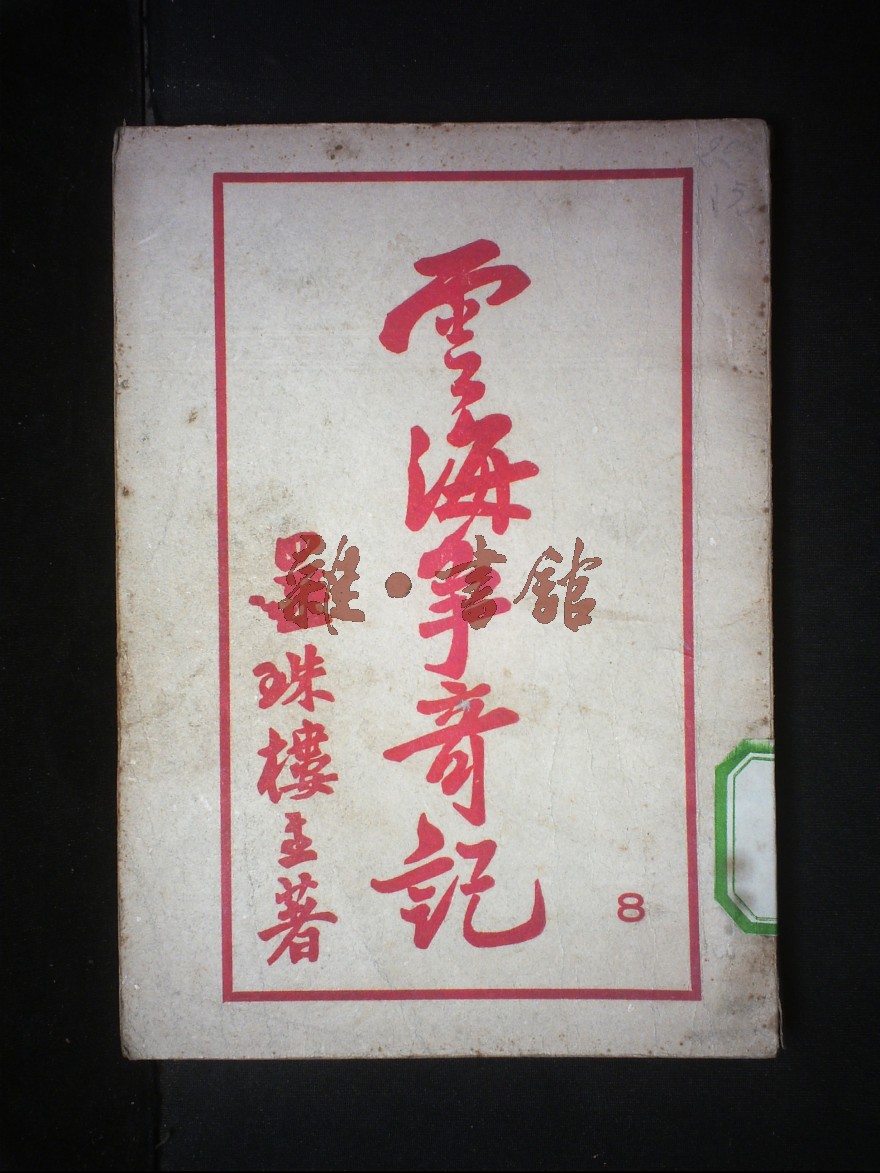 雲海爭奇記
還珠樓主著
8
雜·書館